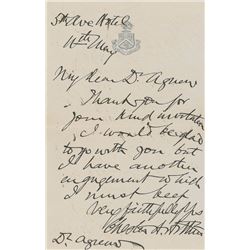 5th Ave Hotel
11th May
My dear Dr Agnew
Thank you for
your kind invitation
I would be glad
to go with you but
I have another
engagement which
I must keep
Very faithfully yrs
Chester A. Arthur
Dr Agnew